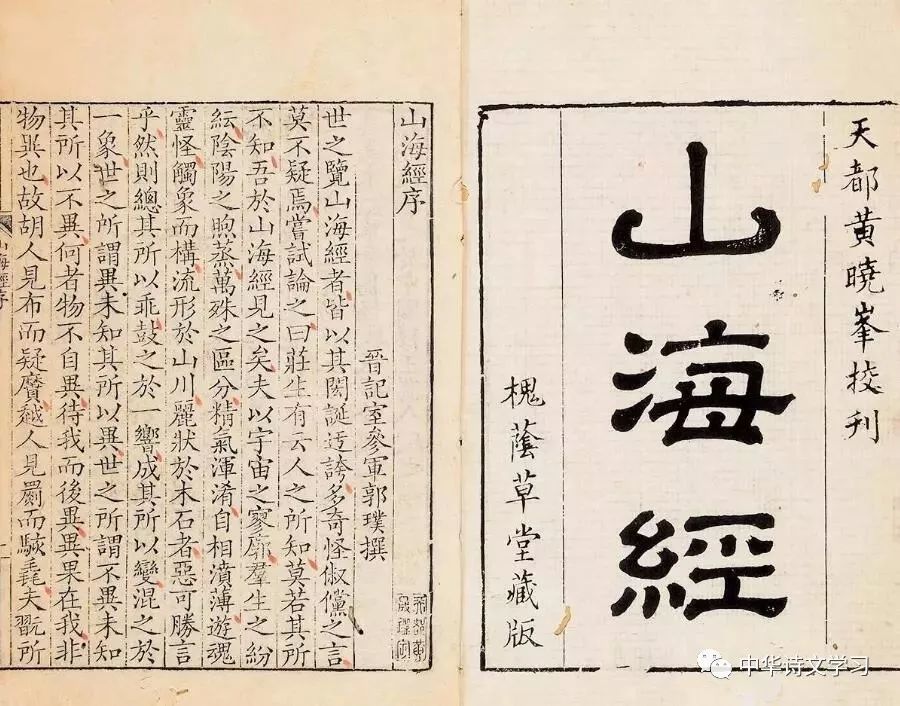 天都黄曉峯挍刋
山海經
槐蔭草堂藏版
山海經序
晉記室參軍郭璞撰
世之覽山海經者皆以其閎誕迃誇多奇怪俶儻之言
莫不疑焉嘗試論之曰莊生有云人之所知莫若其所
不知吾於山海經見之矣夫以宇宙之寥廓羣生之紛
紜陰陽之煦蒸萬殊之區分精氣渾淆自相濆薄遊魂
靈怪觸象而構流形於山川麗狀於木石者惡可勝言
乎然則總其所以乖鼓之於一響成其所以變混之於
一象世之所謂異未知其所以異世之所謂不異未知
其所以不異何者物不自異待我而後異異果在我非
物異也故胡人見布而疑黂越人見罽而駭毳夫翫所
山海經序
中华诗文学习